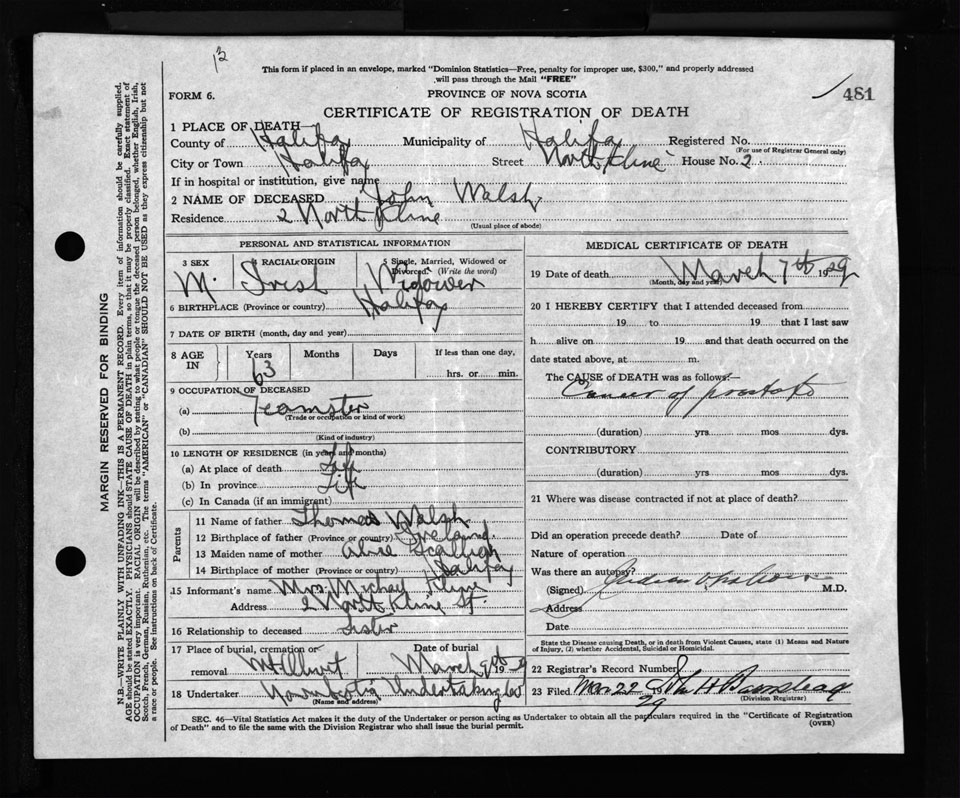 13
This form if placed in an envelope, marked "Dominion Statistics—Free, penalty for improper use, $300," and properly addressed
will pass through the Mail "FREE"
481
FORM 6.
PROVINCE OF NOVA SCOTIA
CERTIFICATE OF REGISTRATION OF DEATH
1 PLACE OF DEATH—
County of Halifax Municipality of Halifax Registered No.
(For use of Registrar General only)
City or Town Halifax Street North Kline House No. 2
If in hospital or institution, give name
2 NAME OF DECEASED John Walsh
Residence 2 North Kline
(Usual place of abode)
PERSONAL AND STATISTICAL INFORMATION
3 SEX 4 RACIAL ORIGIN 5 Single, Married, Widowed or Divorced. (Write the word)
M. Irish Widower
6 BIRTHPLACE (Province or country) Halifax
7 DATE OF BIRTH (month, day and year)
8 AGE IN Years Months Days If less than one day,
63 hrs. or min.
9 OCCUPATION OF DECEASED
(a) Teamster
(Trade or occupation or kind of work)
(b)
(Kind of industry)
10 LENGTH OF RESIDENCE (in years and months)
(a) At place of death Life
(b) In province Life
(c) In Canada (if an immigrant)
Parents
11 Name of father Thomas Walsh
12 Birthplace of father (Province or country) Ireland
13 Maiden name of mother Alice
14 Birthplace of mother (Province or country) Halifax
15 Informant's name Mrs. Kline
Address 2 North Kline St.
16 Relationship to deceased Sister
17 Place of burial, cremation or removal Date of burial
March 9th 19
18 Undertaker Undertaking Co
(Name and address)
MEDICAL CERTIFICATE OF DEATH
19 Date of death March 7th 1929
(Month, day and year)
20 I HEREBY CERTIFY that I attended deceased from
19 to 19 that I last saw
h alive on 19 and that death occurred on the
date stated above, at m.
The CAUSE of DEATH was as follows:—
Cancer of prostate
(duration) yrs. mos dys.
CONTRIBUTORY
(duration) yrs. mos dys.
21 Where was disease contracted if not at place of death?
Did an operation precede death? Date of
Nature of operation
Was there an autopsy?
(Signed) M.D.
Address
Date
State the Disease causing Death, or in death from Violent Causes, state (1) Means and Nature
of Injury, (2) whether Accidental, Suicidal or Homicidal.
22 Registrar's Record Number
23 Filed Mar 22 1929 John H
(Division Registrar)
SEC. 46—Vital Statistics Act makes it the duty of the Undertaker or person acting as Undertaker to obtain all the particulars required in the "Certificate of Registration
of Death" and to file the same with the Division Registrar who shall issue the burial permit. (OVER)
MARGIN RESERVED FOR BINDING
N.B.—WRITE PLAINLY WITH UNFADING INK—THIS IS A PERMANENT RECORD. Every item of information should be carefully supplied.
AGE should be stated EXACTLY. PHYSICIANS should STATE CAUSE OF DEATH in plain terms, so that it may be properly classified. Exact statement of
OCCUPATION is very important. RACIAL ORIGIN will be described by stating to what people or tongue the deceased person belonged, whether English, Irish,
Scotch, French, German, Russian, Ruthenian, etc. The terms "AMERICAN" or "CANADIAN" SHOULD NOT BE USED as they express citizenship but not
a race or people. See instructions on back of Certificate.